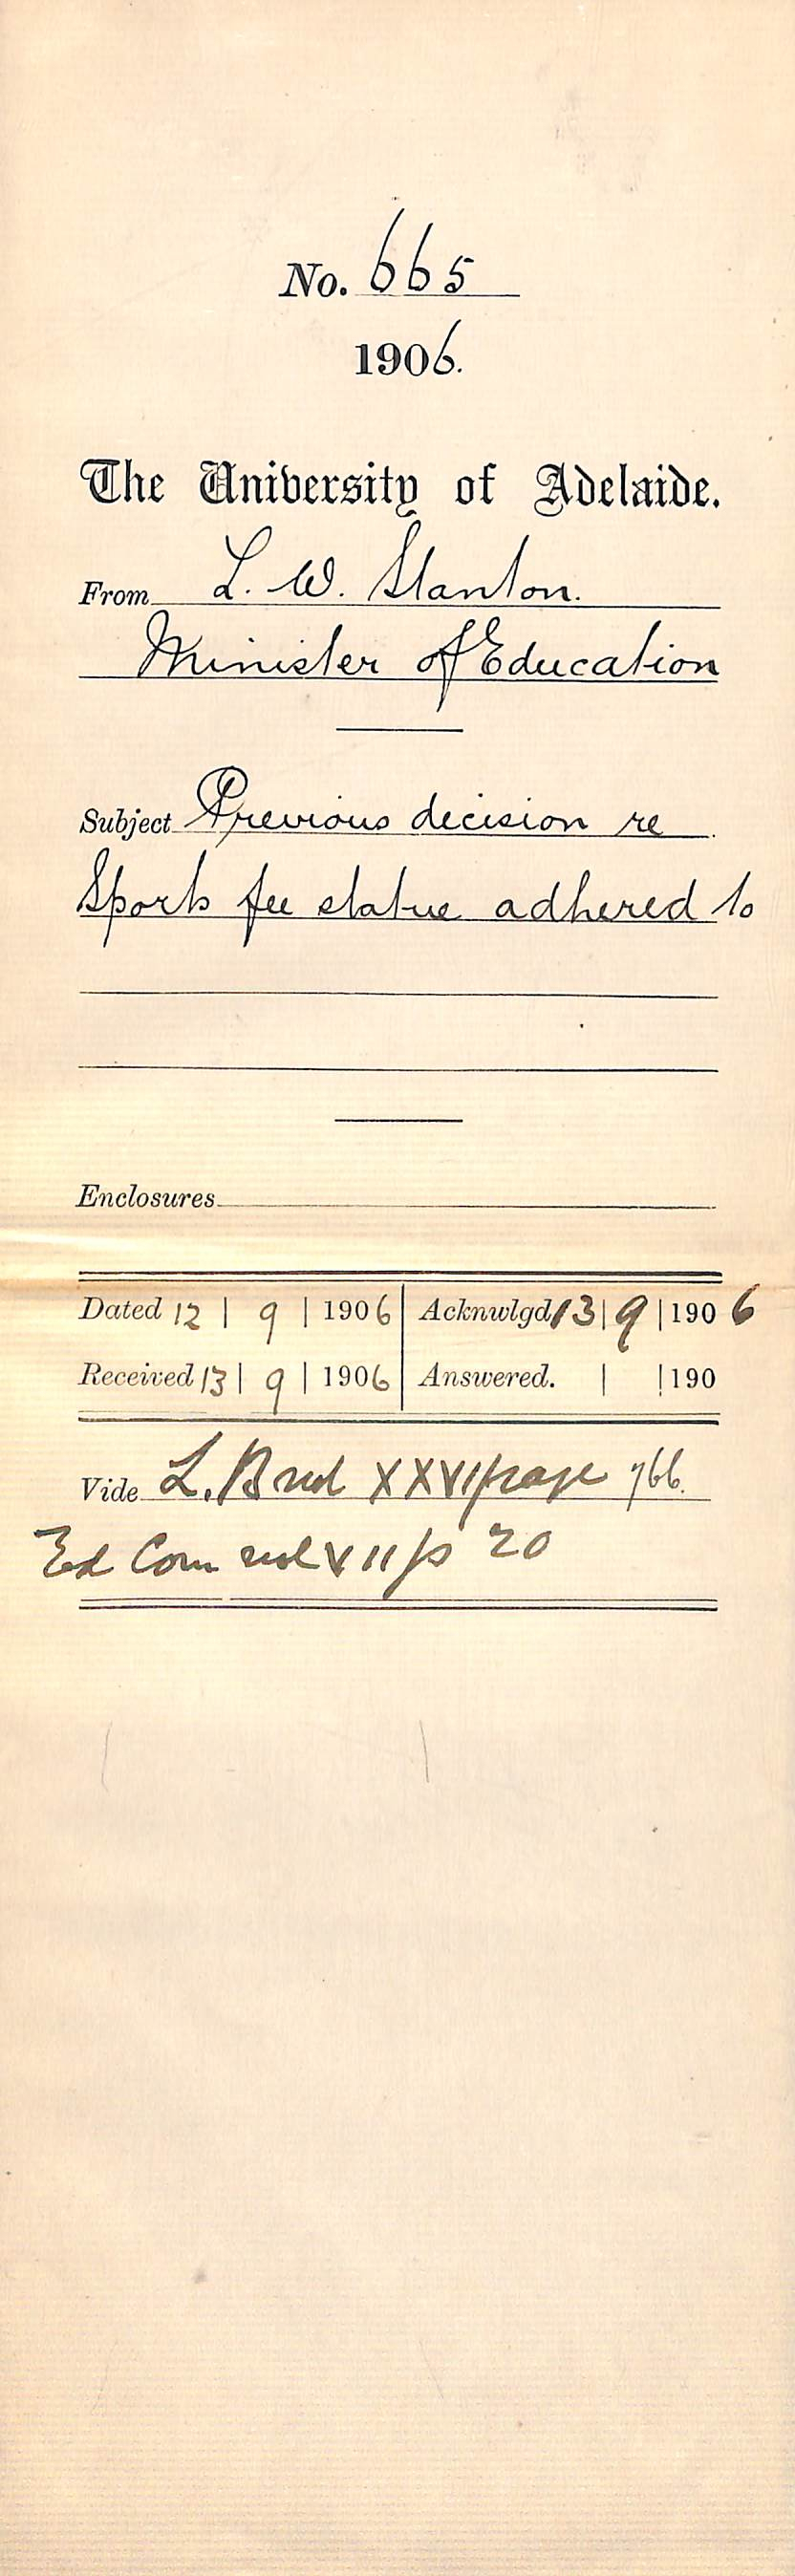 No. 665
1906.
The University of Adelaide.
From L. W. Stanton.
Minister of Education
Subject Previous decision re
Sports fee statue adhered to
Enclosures
Dated 12 | 9 | 1906 Acknwlgd 13 | 9 | 1906
Received 13 | 9 | 1906 Answered. | | 190
Vide L. B vol XXVI page 766.
Ed Com vol VII p 20